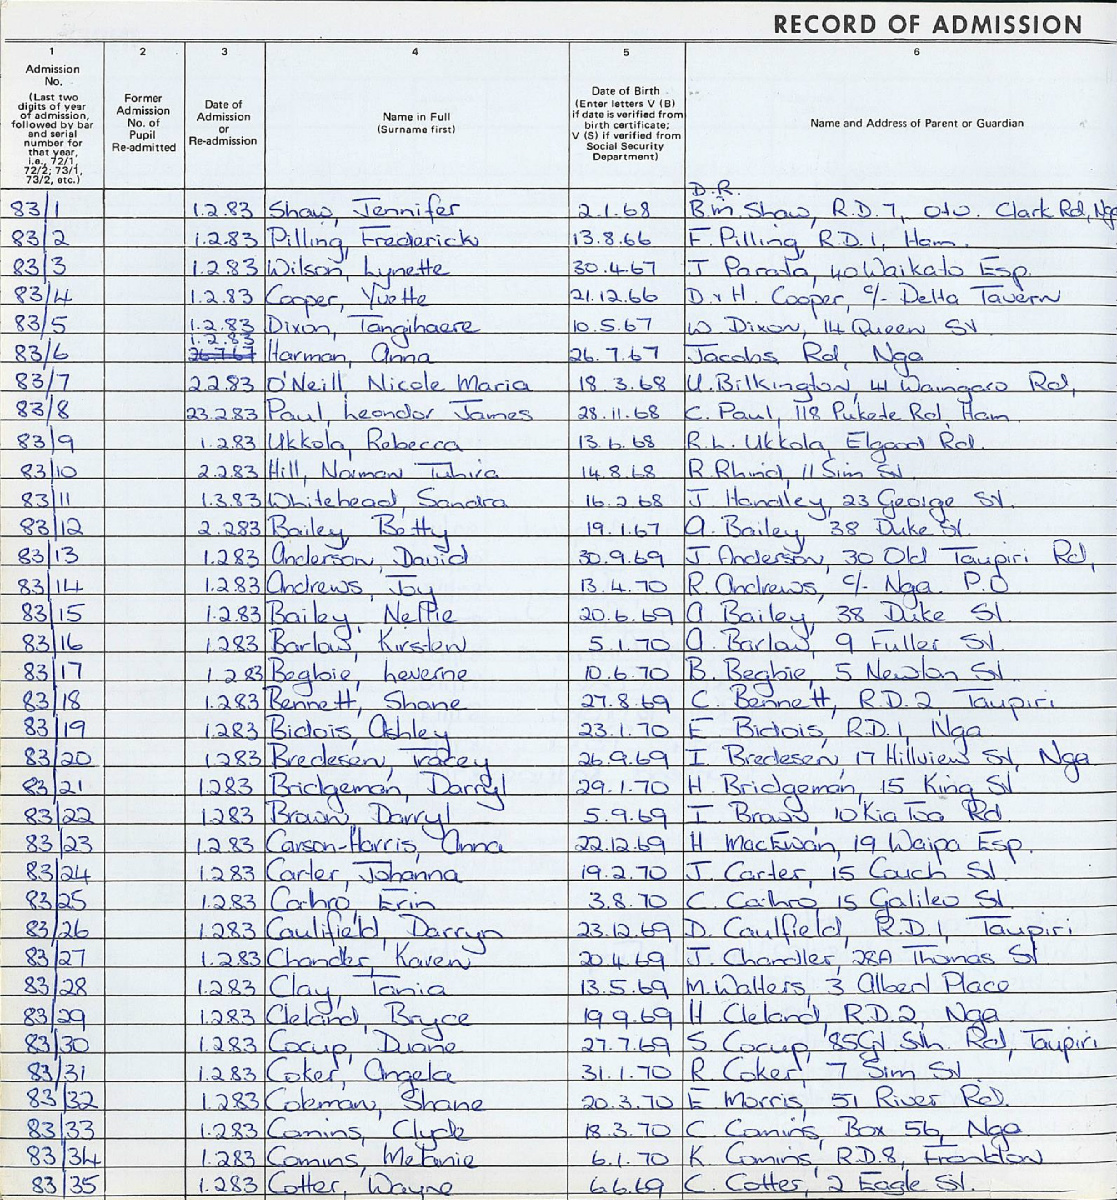 RECORD OF ADMISSION
1 2 3 4 5 6
Admission No. (Last two digits of year of admission, followed by bar and serial number for that year, i.e., 72/1, 72/2; 73/1, 73/2, etc.)
Former Admission No. of Pupil Re-admitted
Date of Admission or Re-admission
Name in Full (Surname first)
Date of Birth (Enter letters V (B) if date is verified from birth certificate; V (S) if verified from Social Security Department)
Name and Address of Parent or Guardian
D.R.
83/1 1.2.83 Shaw, Jennifer 2.1.68 B.M. Shaw, R.D.7, Oto. Clark Rd, Nga
83/2 1.2.83 Pilling, Frederick 13.8.66 F. Pilling, R.D.1, Ham.
83/3 1.2.83 Wilson, Lynette 30.4.67 J Parata, 40 Waikato Esp.
83/4 1.2.83 Cooper, Yvette 21.12.66 D. & H. Cooper, c/- Delta Tavern
83/5 1.2.83 Dixon, Tangihaere 10.5.67 W Dixon, 14 Queen St.
1.2.83
83/6 26.7.67 Harman, Anna 26.7.67 Jacobs Rd, Nga
83/7 2.2.83 O'Neill, Nicole Maria 18.3.68 U. Bilkington, 41 Waingaro Rd,
83/8 23.2.83 Paul, Leondor James 28.11.68 C. Paul, 118 Pukete Rd, Ham
83/9 1.2.83 Ukkola, Rebecca 13.6.68 R.L. Ukkola, Elgood Rd.
83/10 2.2.83 Hill, Norman 14.8.68 R. 11 Sim St.
83/11 1.3.83 Whitehead, Sandra 16.2.68 J. Handley, 23 George St.
83/12 2.2.83 Bailey, Betty 19.1.67 A. Bailey, 38 Duke St.
83/13 1.2.83 Anderson, David 30.9.69 J. Anderson, 30 Old Taupiri Rd,
83/14 1.2.83 Andrews, Joy 13.4.70 R. Andrews, c/- Nga. P.O
83/15 1.2.83 Bailey, Nettie 20.6.69 A. Bailey, 38 Duke St.
83/16 1.2.83 Barlow, Kirsten 5.1.70 A. Barlow, 9 Fuller St.
83/17 1.2.83 Begbie, Leverne 10.6.70 B. Begbie, 5 Newton St.
83/18 1.2.83 Bennett, Shane 27.8.69 C. Bennett, R.D.2, Taupiri
83/19 1.2.83 Bidois, Ashley 23.1.70 E. Bidois, R.D.1, Nga
83/20 1.2.83 Bredesen, Tracey 26.9.69 I. Bredesen, 17 Hillview St, Nga
83/21 1.2.83 Bridgeman, Darryl 29.1.70 H. Bridgeman, 15 King St
83/22 1.2.83 Brown, Darryl 5.9.69 I. Brown 10 Kia Toa Rd.
83/23 1.2.83 Carson-Harris, Anna 22.12.69 H MacEwan, 19 Waipa Esp.
83/24 1.2.83 Carter, Johanna 19.2.70 J. Carter, 15 Couch St.
83/25 1.2.83 Cathro, Erin 3.8.70 C. Cathro, 15 Galileo St.
83/26 1.2.83 Caulifield, Darryn 23.12.69 D. Caulfield, R.D.1, Taupiri
83/27 1.2.83 Chandler, Karen 20.4.69 J. Chandler, 28A Thomas St
83/28 1.2.83 Clay, Tania 13.5.69 M. Walters, 3 Albert Place
83/29 1.2.83 Cleland, Bryce 19.9.69 H Cleland, R.D.2, Nga.
83/30 1.2.83 Cocup, Duane 27.7.69 S. Cocup, 85 Gt. Sth. Rd, Taupiri
83/31 1.2.83 Coker, Angela 31.1.70 R. Coker, 7 Sim St.
83/32 1.2.83 Coleman, Shane 20.3.70 E. Morris, 51 River Rd.
83/33 1.2.83 Comins, Clyde 18.3.70 C Comins, Box 56, Nga.
83/34 1.2.83 Comins, Melanie 6.1.70 K. Comins, R.D.8, Frankton
83/35 1.2.83 Cotter, Wayne 6.6.69 C. Cotter, 2 Eagle St.